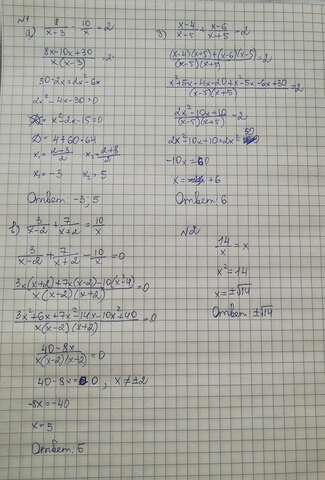 №1
а) 8/(x-3) - 10/x = 2
(8x-10x+30)/(x(x-3)) = 2
30-2x=2x²-6x
2x²-4x-30=0
x²-2x-15=0
D=4+60=64
x₁=(2-8)/2 x₂=(2+8)/2
x₁=-3 x₂=5
Ответ: -3; 5
в) 3/(x-2) + 7/(x+2) = 10/x
3/(x-2) + 7/(x+2) - 10/x = 0
(3x(x+2)+7x(x-2)-10(x²-4))/(x(x-2)(x+2)) = 0
(3x²+6x+7x²-14x-10x²+40)/(x(x-2)(x+2)) = 0
(40-8x)/(x(x-2)(x+2)) = 0
40-8x=0, x≠±2
-8x=-40
x=5
Ответ: 5
(x-4)/(x-5) + (x-6)/(x+5) = 2
((x-4)(x+5)+(x-6)(x-5))/((x-5)(x+5)) = 2
(x²+5x-4x-20+x²-5x-6x+30)/((x-5)(x+5)) = 2
(2x²-10x+10)/((x-5)(x+5)) = 2
2x²-10x+10=2x²-50
-10x=-60
x=6
Ответ: 6
№2
14/x = x
x²=14
x=±√14
Ответ: ±√14